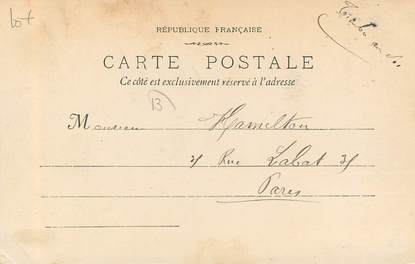 lot
RÉPUBLIQUE FRANÇAISE
CARTE POSTALE
Ce côté est exclusivement réservé à l'adresse
13
Monsieur Hamelton
35 Rue Labat 35
Paris